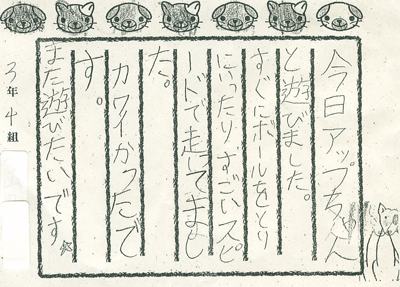 今日アップちゃん
と遊びました。
すぐにボールをとり
にいったりすごいスピ
ードで走ってまし
た。
カワイかったで
す。
また遊びたいです
3年4組